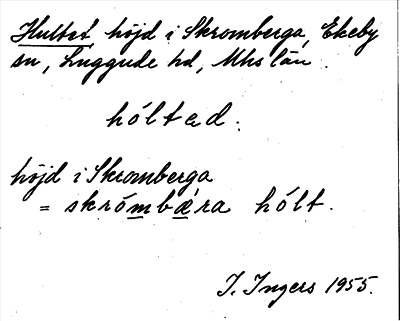 Hultet höjd i Skromberga, Ekeby
sn, Luggude hd, Mhs län.
hóltad.
höjd i Skromberga
= skrómbæra hólt.
I. Ingers 1955.